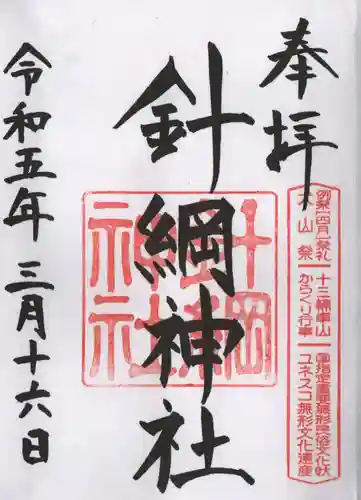 奉拝
例祭(四月)祭礼
犬山祭
十三輌車山
からくり行事
国指定重要無形民俗文化財
ユネスコ無形文化遺産
針綱神社
針綱
神社
令和五年三月十六日